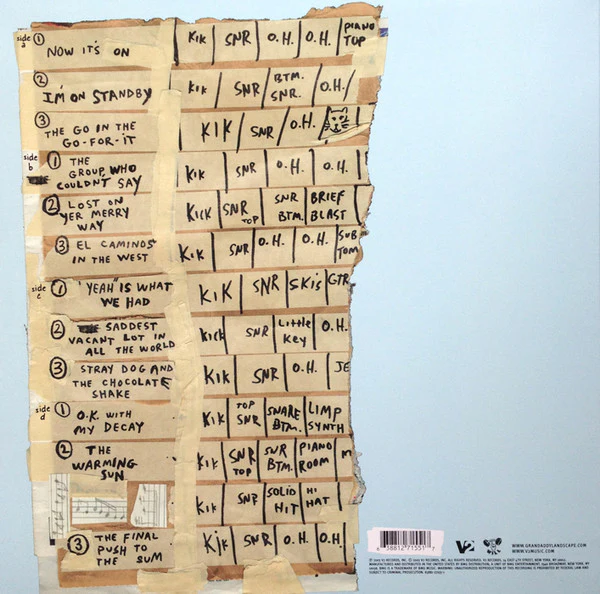 side a ① NOW IT'S ON KIK SNR O.H. O.H. PIANO TOP
② I'M ON STANDBY KIK SNR BTM. SNR. O.H.
③ THE GO IN THE GO-FOR-IT KIK SNR O.H.
side b ① THE GROUP WHO COULDN'T SAY KIK SNR O.H. O.H.
② LOST ON YER MERRY WAY KICK SNR TOP SNR BTM. BRIEF BLAST
③ EL CAMINOS IN THE WEST KIK SNR O.H. O.H. SUB TOM
side c ① "YEAH" IS WHAT WE HAD KIK SNR SKIS GTR
② SADDEST VACANT LOT IN ALL THE WORLD KICK SNR LITTLE KEY O.H.
③ STRAY DOG AND THE CHOCOLATE SHAKE KIK SNR O.H. JE
side d ① O.K. WITH MY DECAY KIK TOP SNR SNARE BTM. LIMP SYNTH
② THE WARMING SUN KIK SNR TOP SNR BTM. PIANO ROOM M
KIK SNR SOLID HIT HI HAT
③ THE FINAL PUSH TO THE SUM KIK SNR O.H. O.H.
V2
WWW.GRANDADDYLANDSCAPE.COM
WWW.V2MUSIC.COM